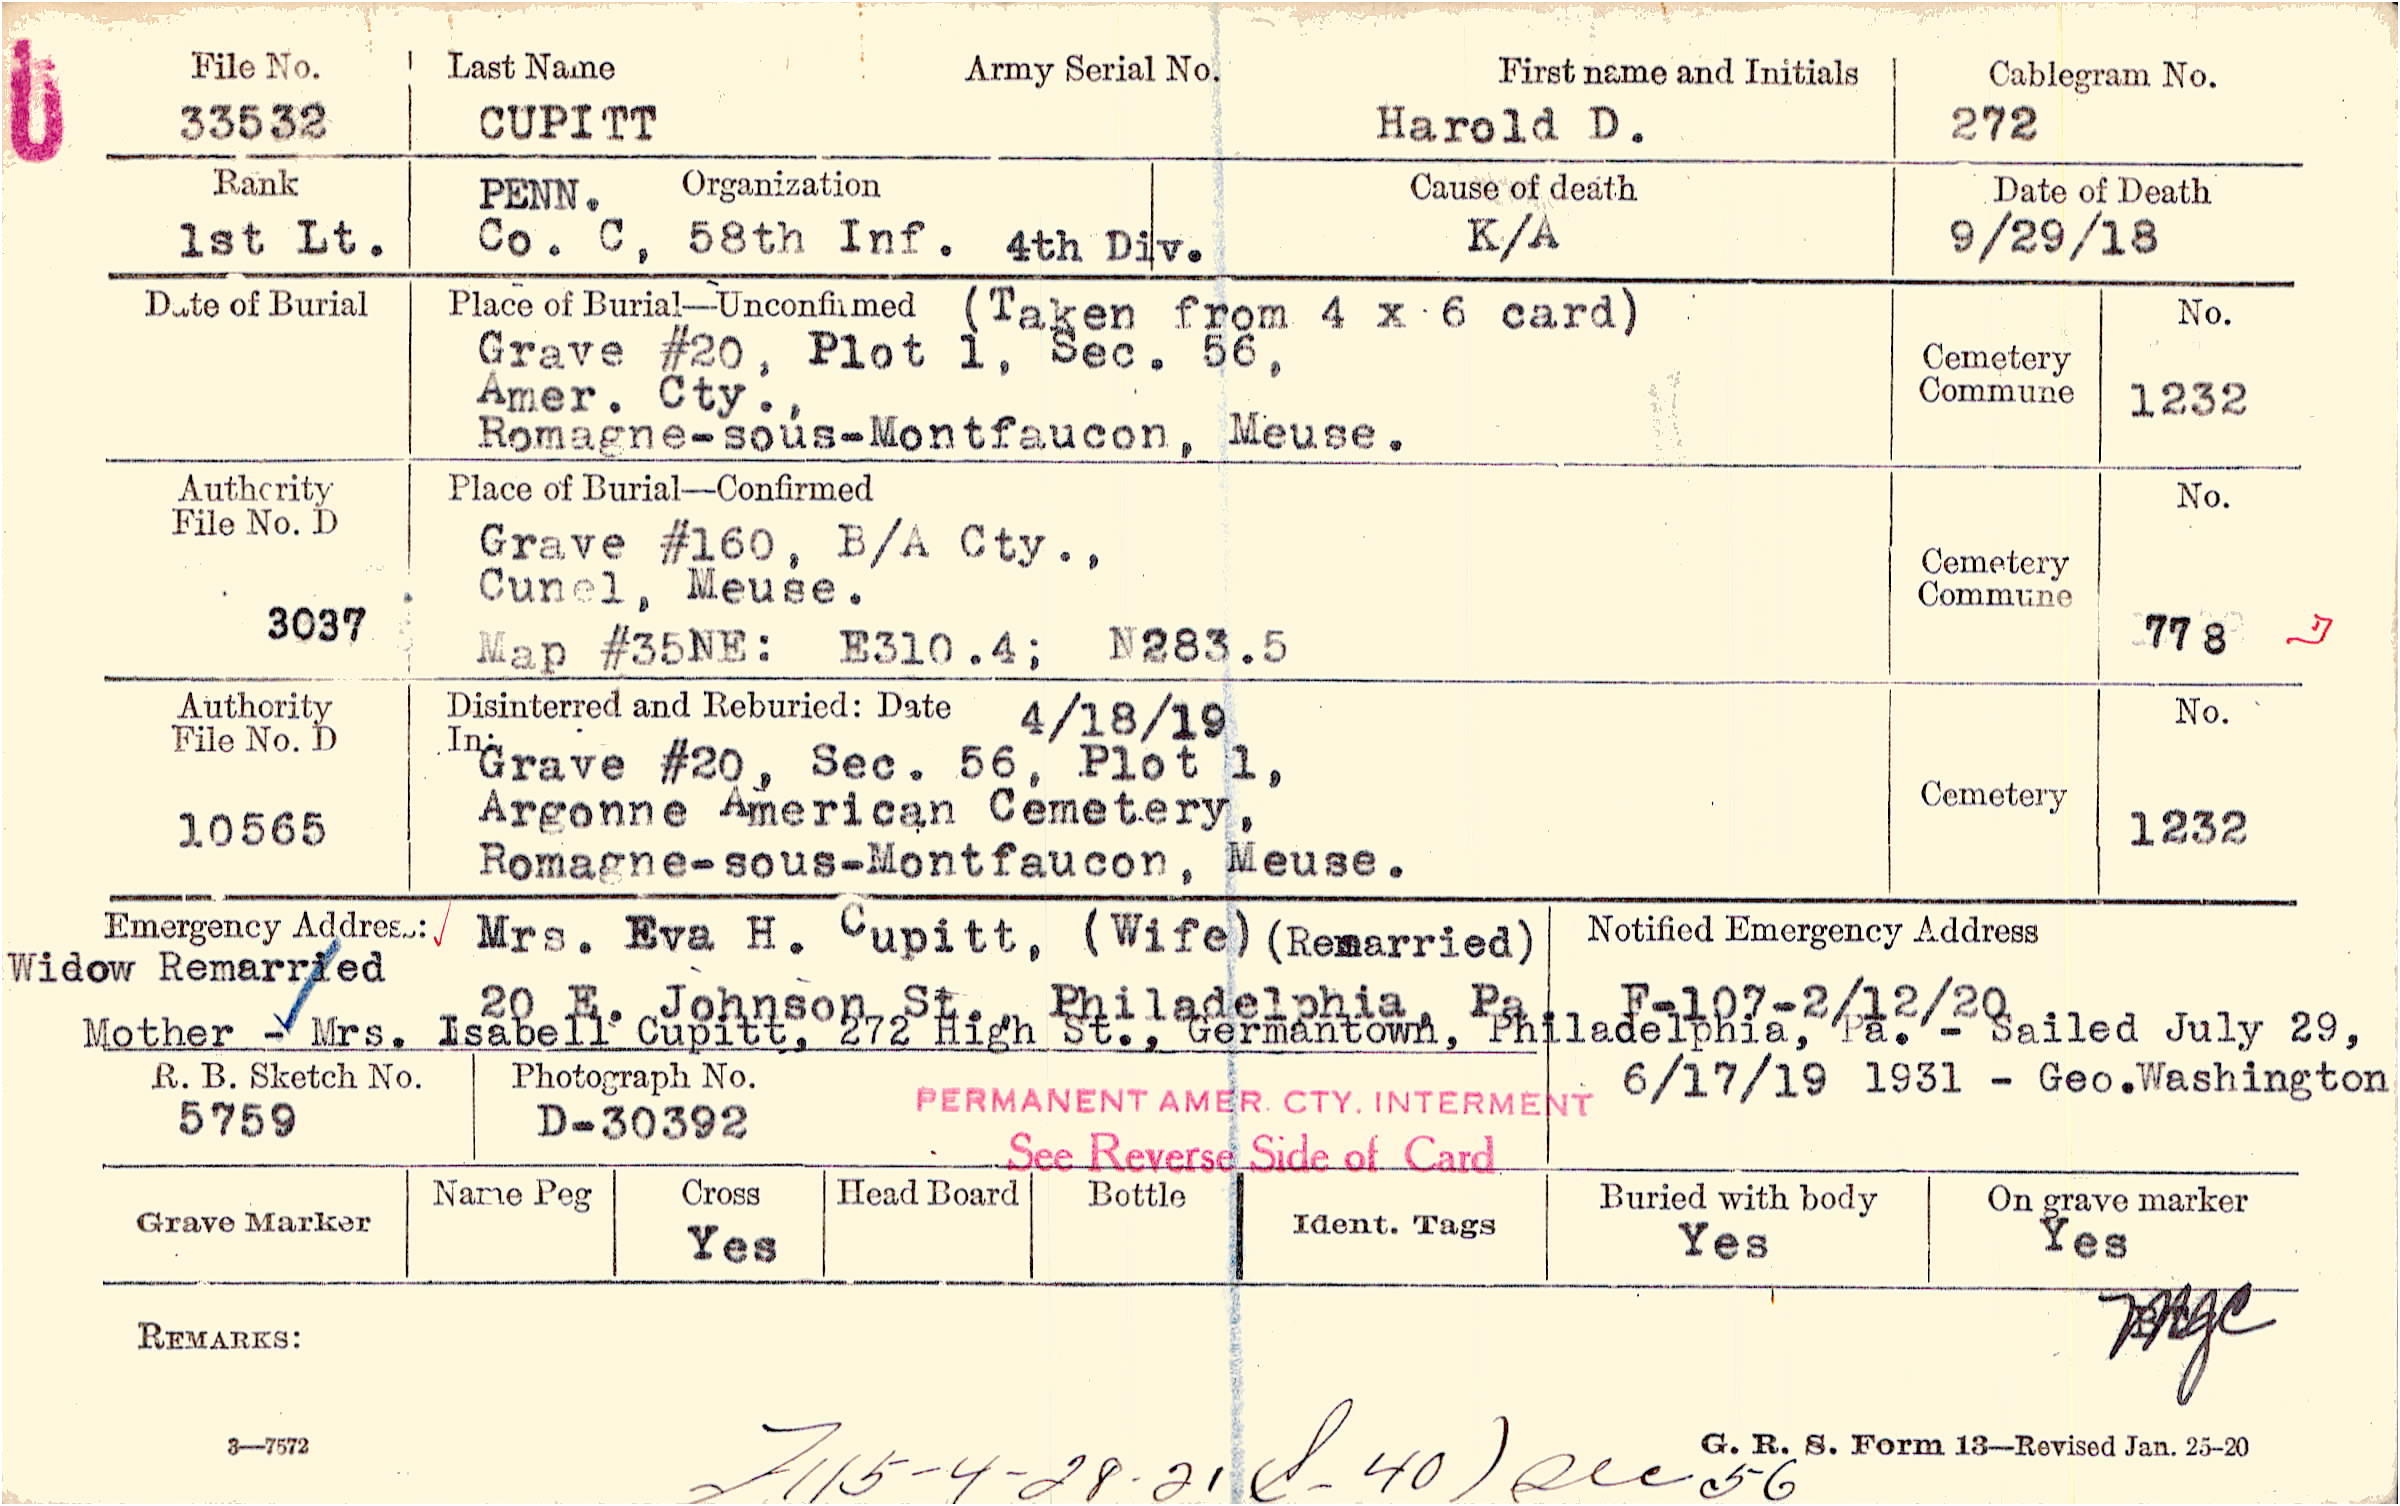 File No. Last Name Army Serial No. First name and Initials Cablegram No.
33532 CUPITT Harold D. 272
Rank PENN. Organization Cause of death Date of Death
1st Lt. Co. C, 58th Inf. 4th Div. K/A 9/29/18
Date of Burial Place of Burial—Unconfirmed (Taken from 4 x 6 card) No.
Grave #20, Plot 1, Sec. 56,
Amer. Cty.,
Cemetery
Commune 1232
Romagne-sous-Montfaucon, Meuse.
Authority Place of Burial—Confirmed No.
File No. D
Grave #160, B/A Cty.,
Cunel, Meuse.
Cemetery
Commune
3037 778
Map #35NE: E310.4; N283.5
Authority Disinterred and Reburied: Date 4/18/19 No.
File No. D In:
Grave #20, Sec. 56, Plot 1,
Argonne American Cemetery, Cemetery
10565 1232
Romagne-sous-Montfaucon, Meuse.
Emergency Address: Mrs. Eva H. Cupitt, (Wife) (Remarried) Notified Emergency Address
Widow Remarried
20 E. Johnson St., Philadelphia, Pa F-107-2/12/20
Mother - Mrs. Isabell Cupitt, 272 High St., Germantown, Philadelphia, Pa. - Sailed July 29,
R. B. Sketch No. Photograph No. 6/17/19 1931 - Geo.Washington
5759 D-30392
PERMANENT AMER. CTY. INTERMENT
See Reverse Side of Card
Grave Marker Name Peg Cross Head Board Bottle Ident. Tags Buried with body On grave marker
Yes Yes Yes
REMARKS:
3—7572 G. R. S. Form 13—Revised Jan. 25-20
115-4-28-21 -40) Sec 56